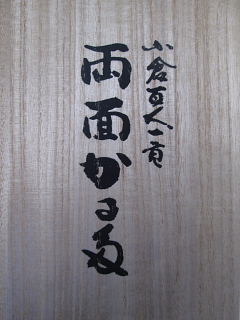 小倉百人一首
両面かるた